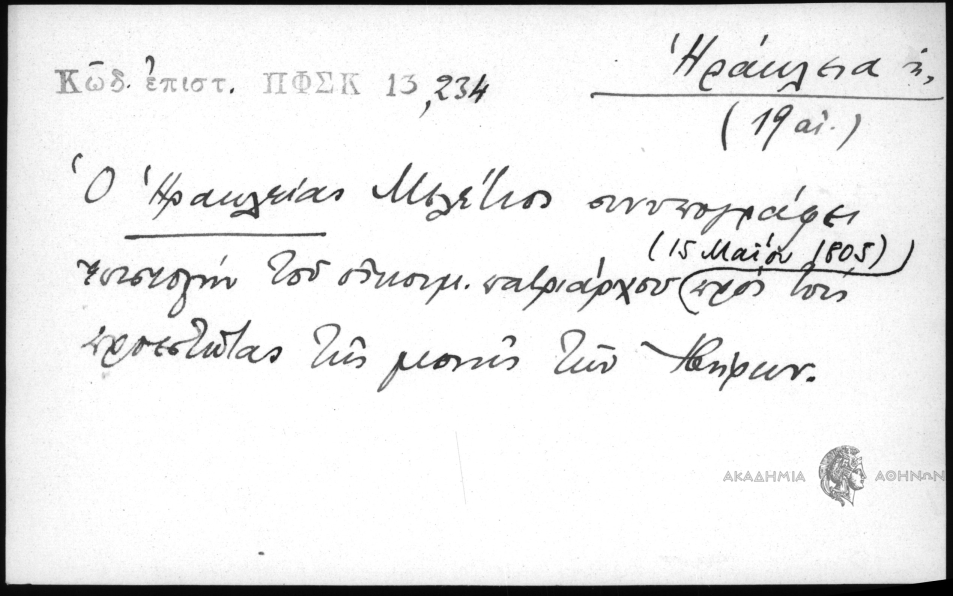 Κῶδ. ἐπιστ. ΠΦΣΚ 13,234
Ἡράκλεια ἡ,
(19 αἰ.)
Ὁ Ἡρακλείας Μελέτιος συνυπογράφει
(15 Μαΐου 1805)
ἐπιστολήν τοῦ οἰκουμ. πατριάρχου πρός τούς
προεστῶτας τῆς μονῆς τῶν Ἰβήρων.
ΑΚΑΔΗΜΙΑ ΑΘΗΝΩΝ